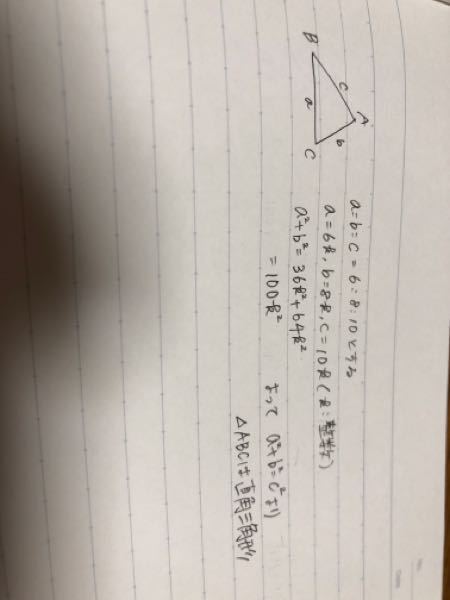 A
c
b
B
a
C
a:b:c=6:8:10とする
a=6k, b=8k, c=10k (k:整数)
a²+b²=36k²+64k²
=100k²
よって a²+b²=c²より
△ABCは直角三角形//